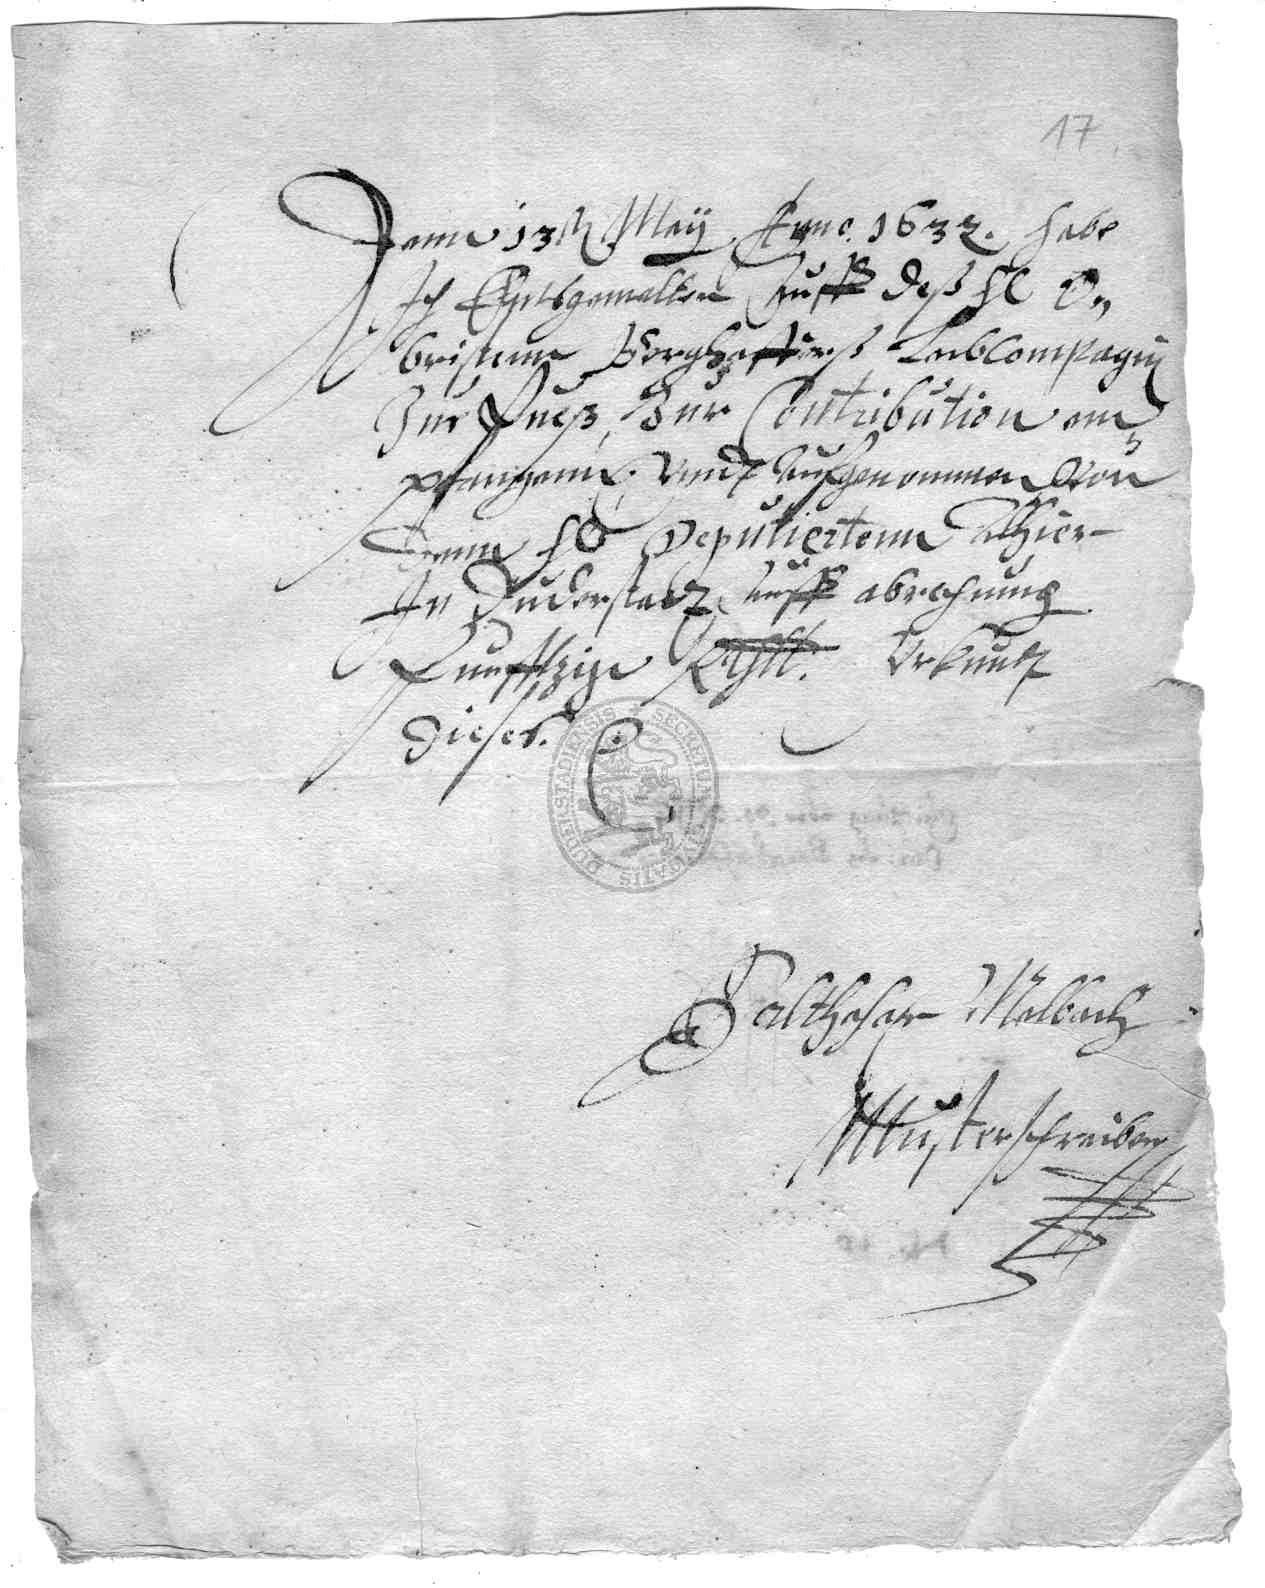 17
Denn 13th Maÿ Anno. 1632. habe
Ich Endtsgemelter Auff deß H O„
bristenn Leibcompagni
Zu Zur Contribution em
pfangenn, Vnndt Auffgenommen Von
denn H Deputiertenn Alhier
In Duderstadt, Auff abrechnung
Funfftzige Rthll. Urkundt
Dieses.
SECRETUM CIVITATIS DUDERSTADIENSIS
Balthasar Malbach
Musterschreiber